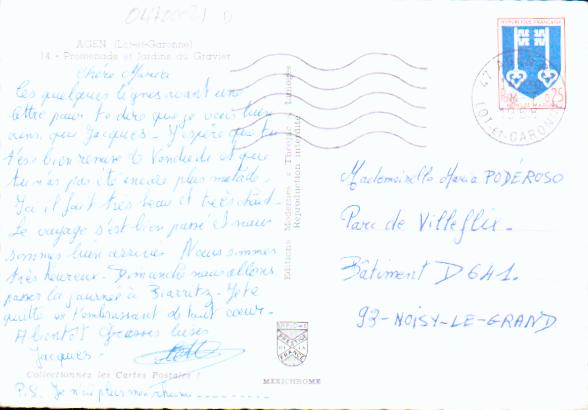 04700021 D
AGEN (Lot-et-Garonne)
14 - Promenade et Jardins du Gravier
Chère Maria
Ces quelques lignes avant une
lettre pour te dire que je vais bien
ainsi que Jacques - J'espère que tu
t'es bien remise Vendredi et que
tu n'as pas été encore plus malade.
Ici il fait très beau et très chaud.
Le voyage s'est bien passé et nous
sommes bien arrivés. Nous sommes
très heureux. Dimanche nous allons
passer la journée à Biarritz. Je te
quitte en t'embrassant de tout coeur.
A bientôt Grosses bises
Jacques.
Collectionnez les Cartes Postales !
P.S. Je n'ai plus mon rhume
Editions Modernes « Théojac » Limoges
Reproduction interdite
IMPRIMÉ
PRESTIGE
DE LA
FRANCE
MEXICHROME
REPUBLIQUE FRANÇAISE
0,25
47
LOT-ET-GARONNE
Mademoiselle Maria PODÉROSO
Parc de Villeflix.
Bâtiment D 641.
93-NOISY-LE-GRAND